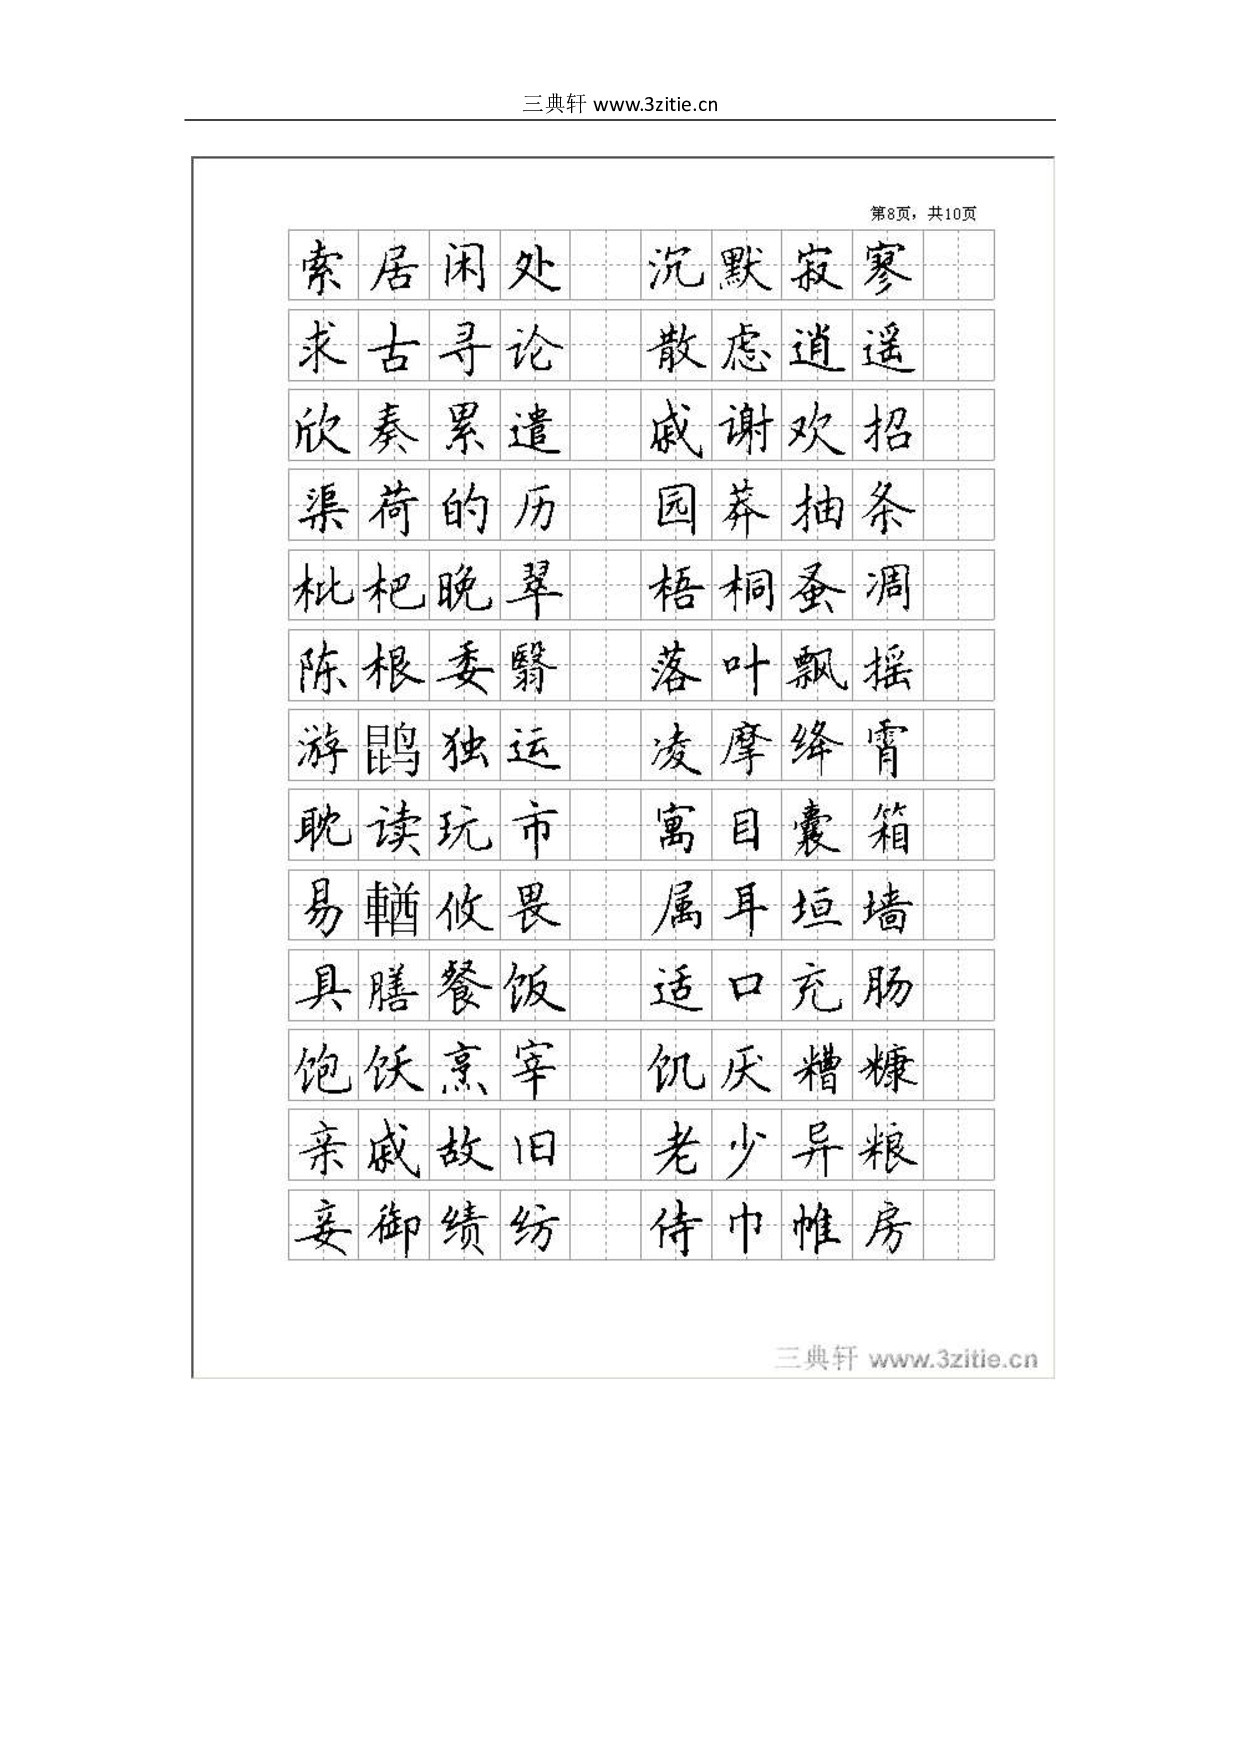 三典轩 www.3zitie.cn
第8页，共10页
索居闲处 沉默寂寥
求古寻论 散虑逍遥
欣奏累遣 戚谢欢招
渠荷的历 园莽抽条
枇杷晚翠 梧桐蚤凋
陈根委翳 落叶飘摇
游鹍独运 凌摩绛霄
耽读玩市 寓目囊箱
易輶攸畏 属耳垣墙
具膳餐饭 适口充肠
饱饫烹宰 饥厌糟糠
亲戚故旧 老少异粮
妾御绩纺 侍巾帷房
三典轩 www.3zitie.cn